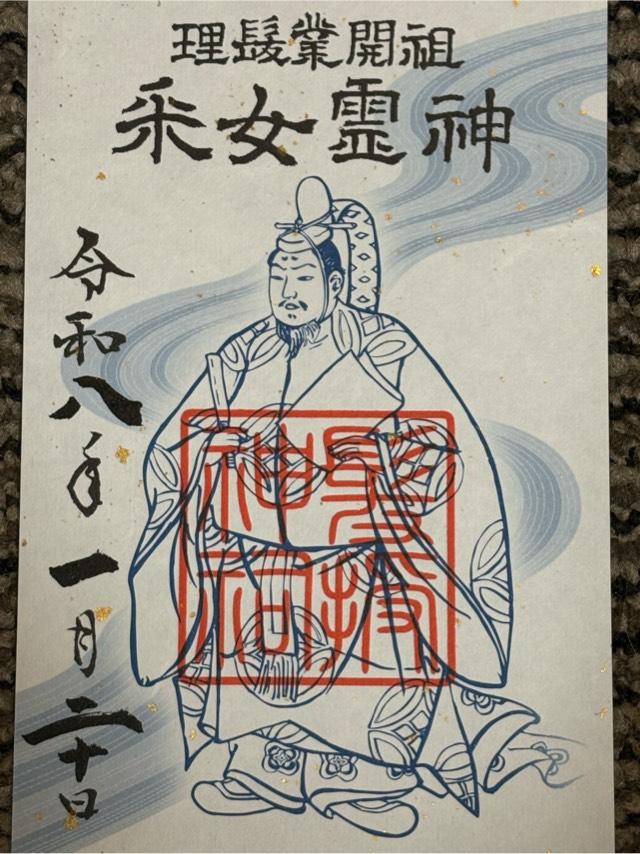 理髪業開祖
采女霊神
令和八年一月二十日